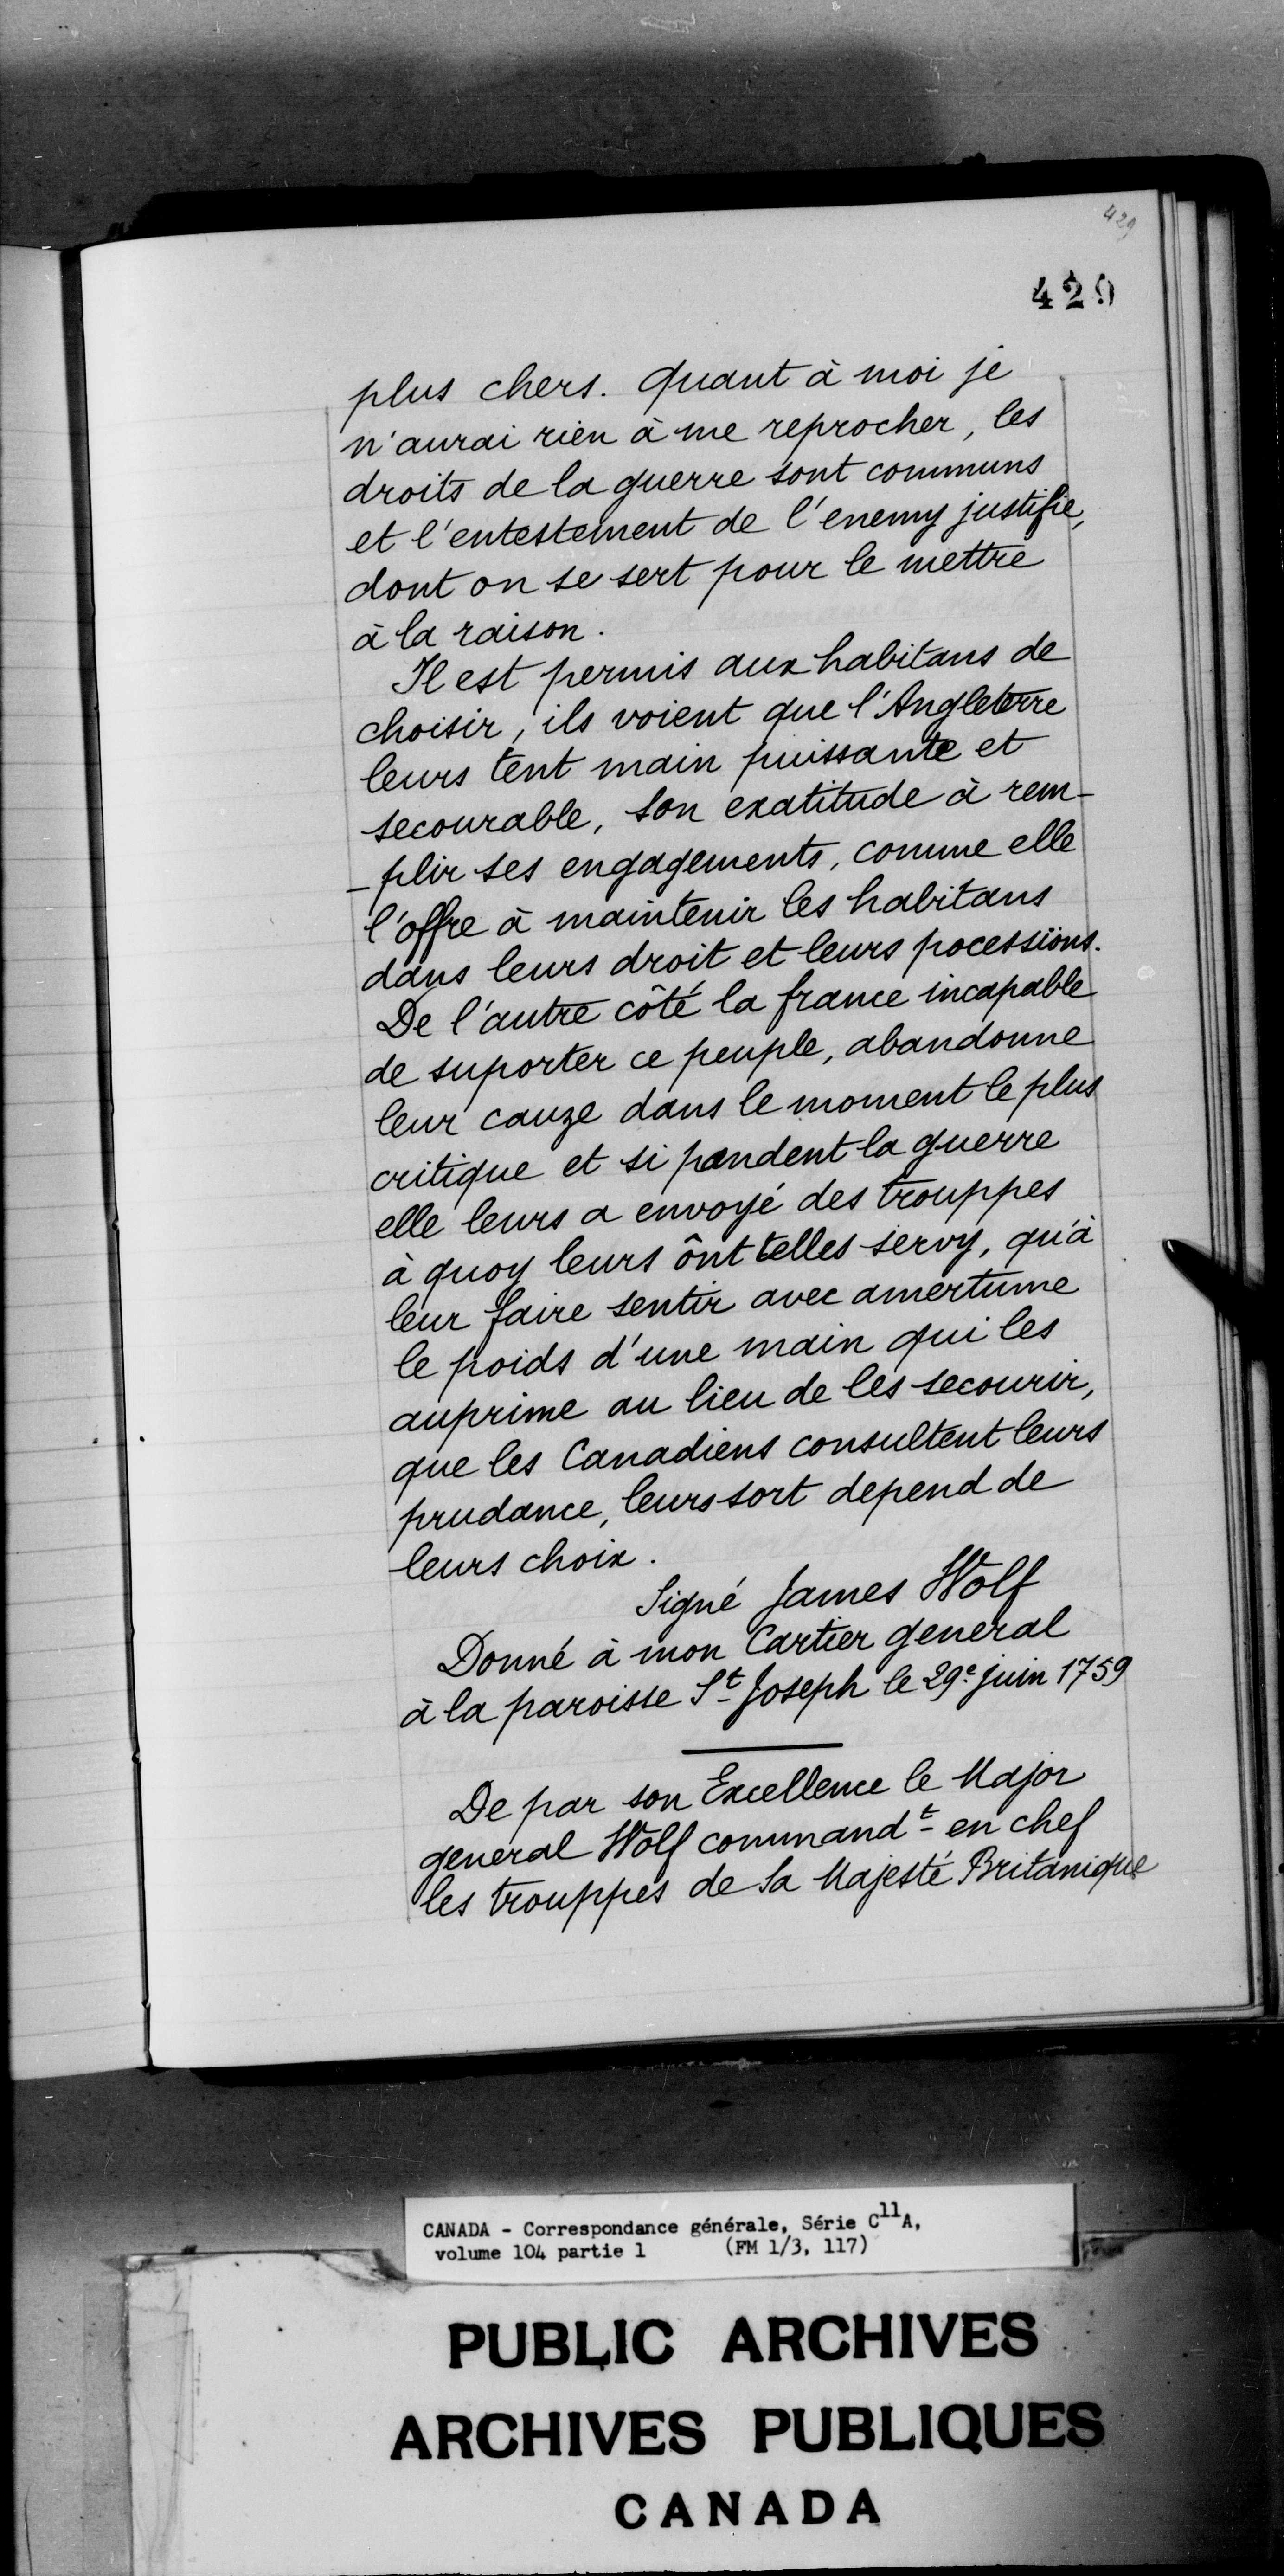 429
429
plus chers. Quant à moi je
n'aurai rien à me reprocher, les
droits de la guerre sont communs
et l'entestement de l'enemy justifie,
dont on se sert pour le mettre
à la raison.
Il est permis aux habitans de
choisir, ils voient que l'Angleterre
leurs tent main puissante et
secourable, son exatitude à rem-
-plir ses engagements, comme elle
l'offre à maintenir les habitans
dans leurs droit et leurs pocessions.
De l'autre côté la france incapable
de suporter ce peuple, abandonne
leur cauze dans le moment le plus
critique et si pandent la guerre
elle leurs a envoyé des trouppes
à quoy leurs ônt telles servy, qu'à
leur faire sentir avec amertume
le poids d'une main qui les
auprime au lieu de les secourir,
que les Canadiens consultent leurs
prudance, leurs sort depend de
leurs choix.
Signé James Wolf
Donné à mon Cartier general
à la paroisse St Joseph le 29e juin 1759
De par son Excellence le Major
general Wolf commandt en chef
les trouppes de Sa Majesté Britanique
CANADA - Correspondance générale, Série C11A,
volume 104 partie 1 (FM 1/3, 117)
PUBLIC ARCHIVES
ARCHIVES PUBLIQUES
CANADA